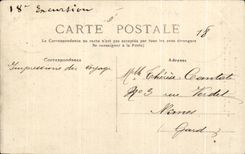 18e Excursion
CARTE POSTALE
18
La Correspondance au recto n'est pas acceptée par tous les pays étrangers
(Se renseigner à la Poste)
Correspondance
Adresse
Impressions de voyage
Mlle Thérèse
No 3 rue Verdet
Nimes
Gard